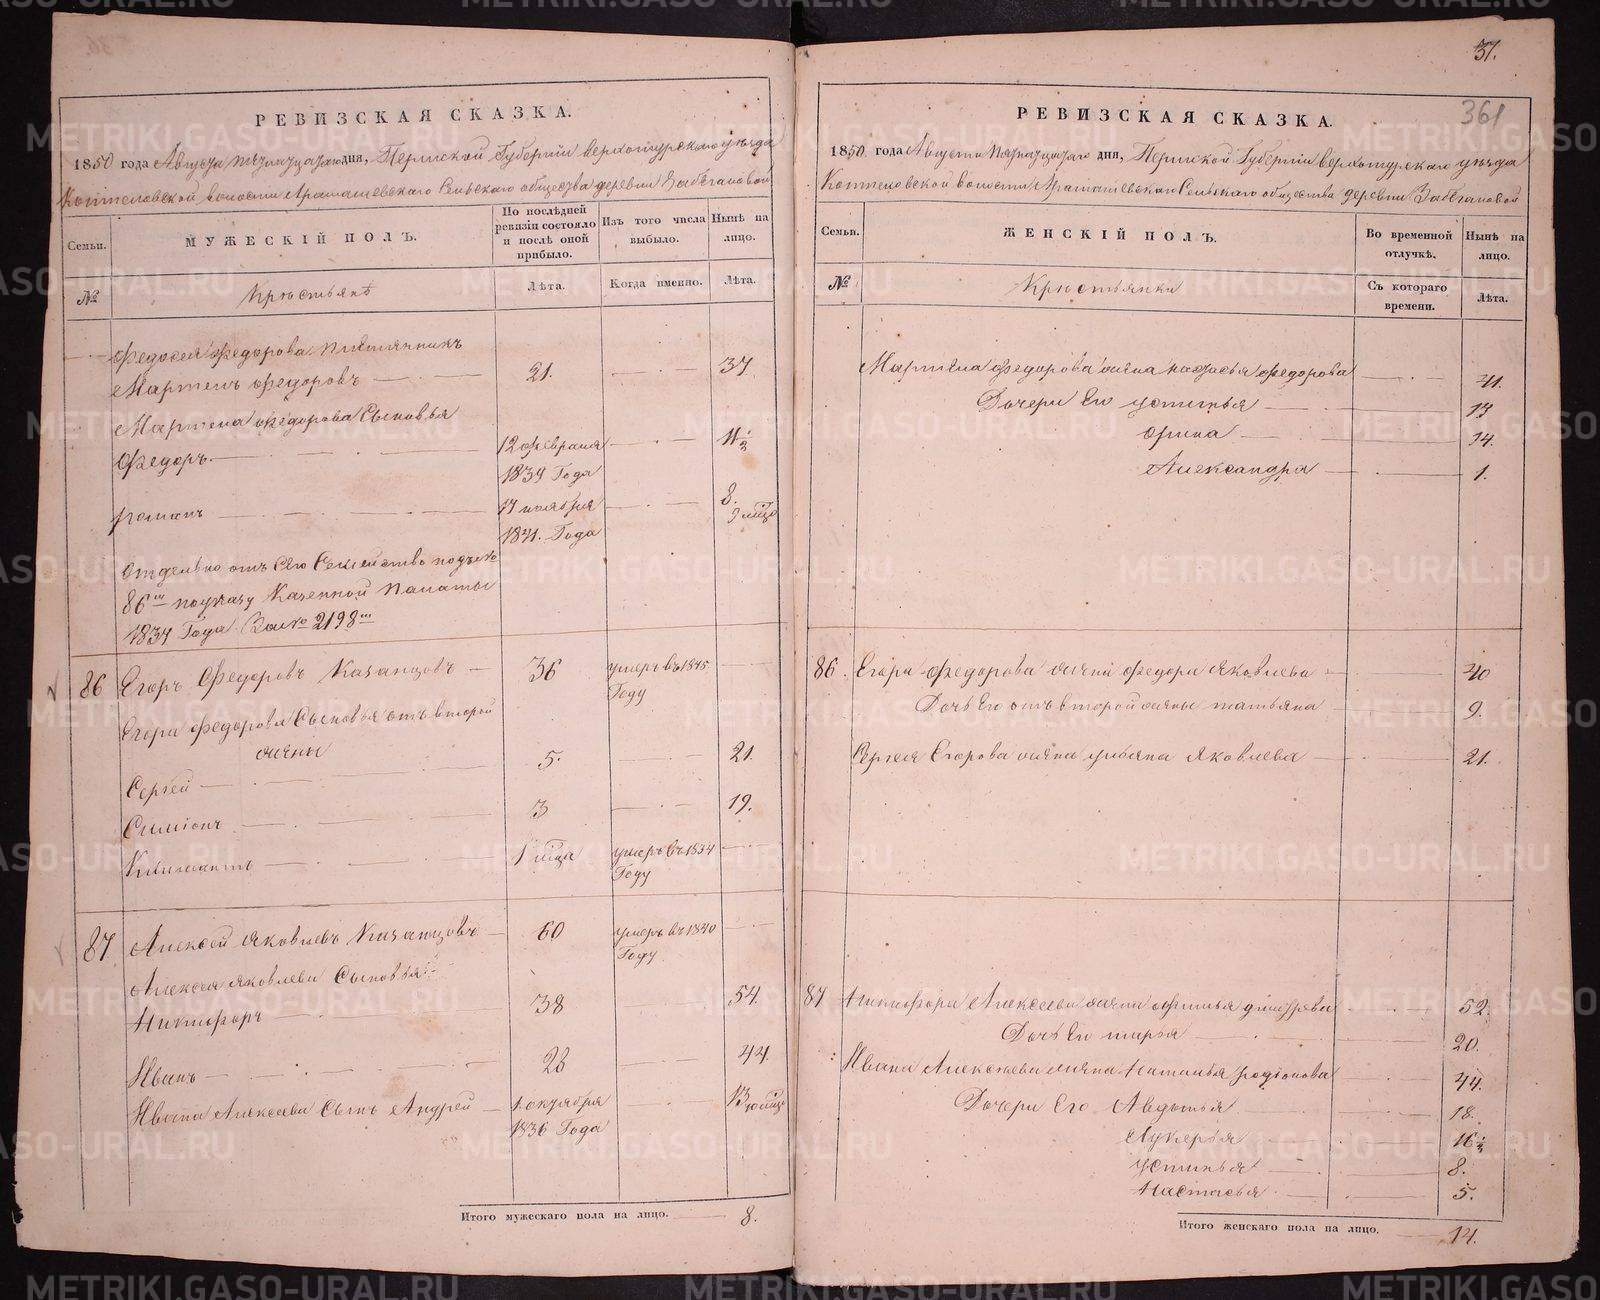 37.
361
РЕВИЗСКАЯ СКАЗКА.
1850 года Августа пятнатцатаго дня, Пермской Губернии верхотурскаго уѣзда
Коптеловской волости Арамашевскаго Сельскаго общества деревни
Семьи.
МУЖЕСКІЙ ПОЛЪ.
По послѣдней ревизіи состояло и послѣ оной прибыло.
Изъ того числа выбыло.
Нынѣ на лицо.
№
Крестьянѣ
Лѣта.
Когда именно.
Лѣта.
Федосея Федорова племянникъ
Мартенъ Федоровъ 21. 37
Мартена Федорова Сыновья
Федоръ 12 февраля 11 1/2
1839 Года
романъ 17 ноября 8.
1841. Года 9 мцов
Отдельно отъ сего Семейство подъ №
86м по указу Казенной Палаты
Года За № 2198м
86 Егоръ Федоровъ Казанцовъ 36 умеръ въ 1845
Году
Егора Федорова Сыновья отъ второй
жены
Сергей 5. 21.
Симіонъ 3 19.
Климантъ 1 мца умеръ въ 1834
Году
87 Алексей Яковлевъ Казанцовъ 60 умеръ въ 1840
Году
Алексея Яковлева Сыновья:
Никифоръ 38 54.
Иванъ 28 44.
Ивана Алексеева Сынъ Андрей 1. октября 13
1836 Года
Итого мужескаго пола на лицо. 8.
РЕВИЗСКАЯ СКАЗКА.
1850 года Августа Пятнатцатаго дня, Пермской Губернии верхотурскаго уѣзда
Коптеловской волости Арамашевскаго Сельскаго общества деревни
Семьи.
ЖЕНСКІЙ ПОЛЪ.
Во временной отлучкѣ.
Нынѣ на лицо.
№
Крестьянки
Съ котораго времени.
Лѣта.
Мартена Федорова жена Федорова 41.
Дочери Его устинья 17
орина 14.
Александра 1.
86. Егора Федорова жена Федора Яковлева 40
Дочь Его отъ второй жены татьяна 9.
Сергея Егорова жена ульяна Яковлева 21.
87 Никифора Алексеева жена 52.
Дочь Ево марья 20.
Ивана Алексеева жена Наталья родіонова 44.
Дочери Его Авдотья 18.
Лукерья 16 1/2
устинья 8.
Настасья 5.
Итого женскаго пола на лицо. 14.
METRIKI.GASO-URAL.RU